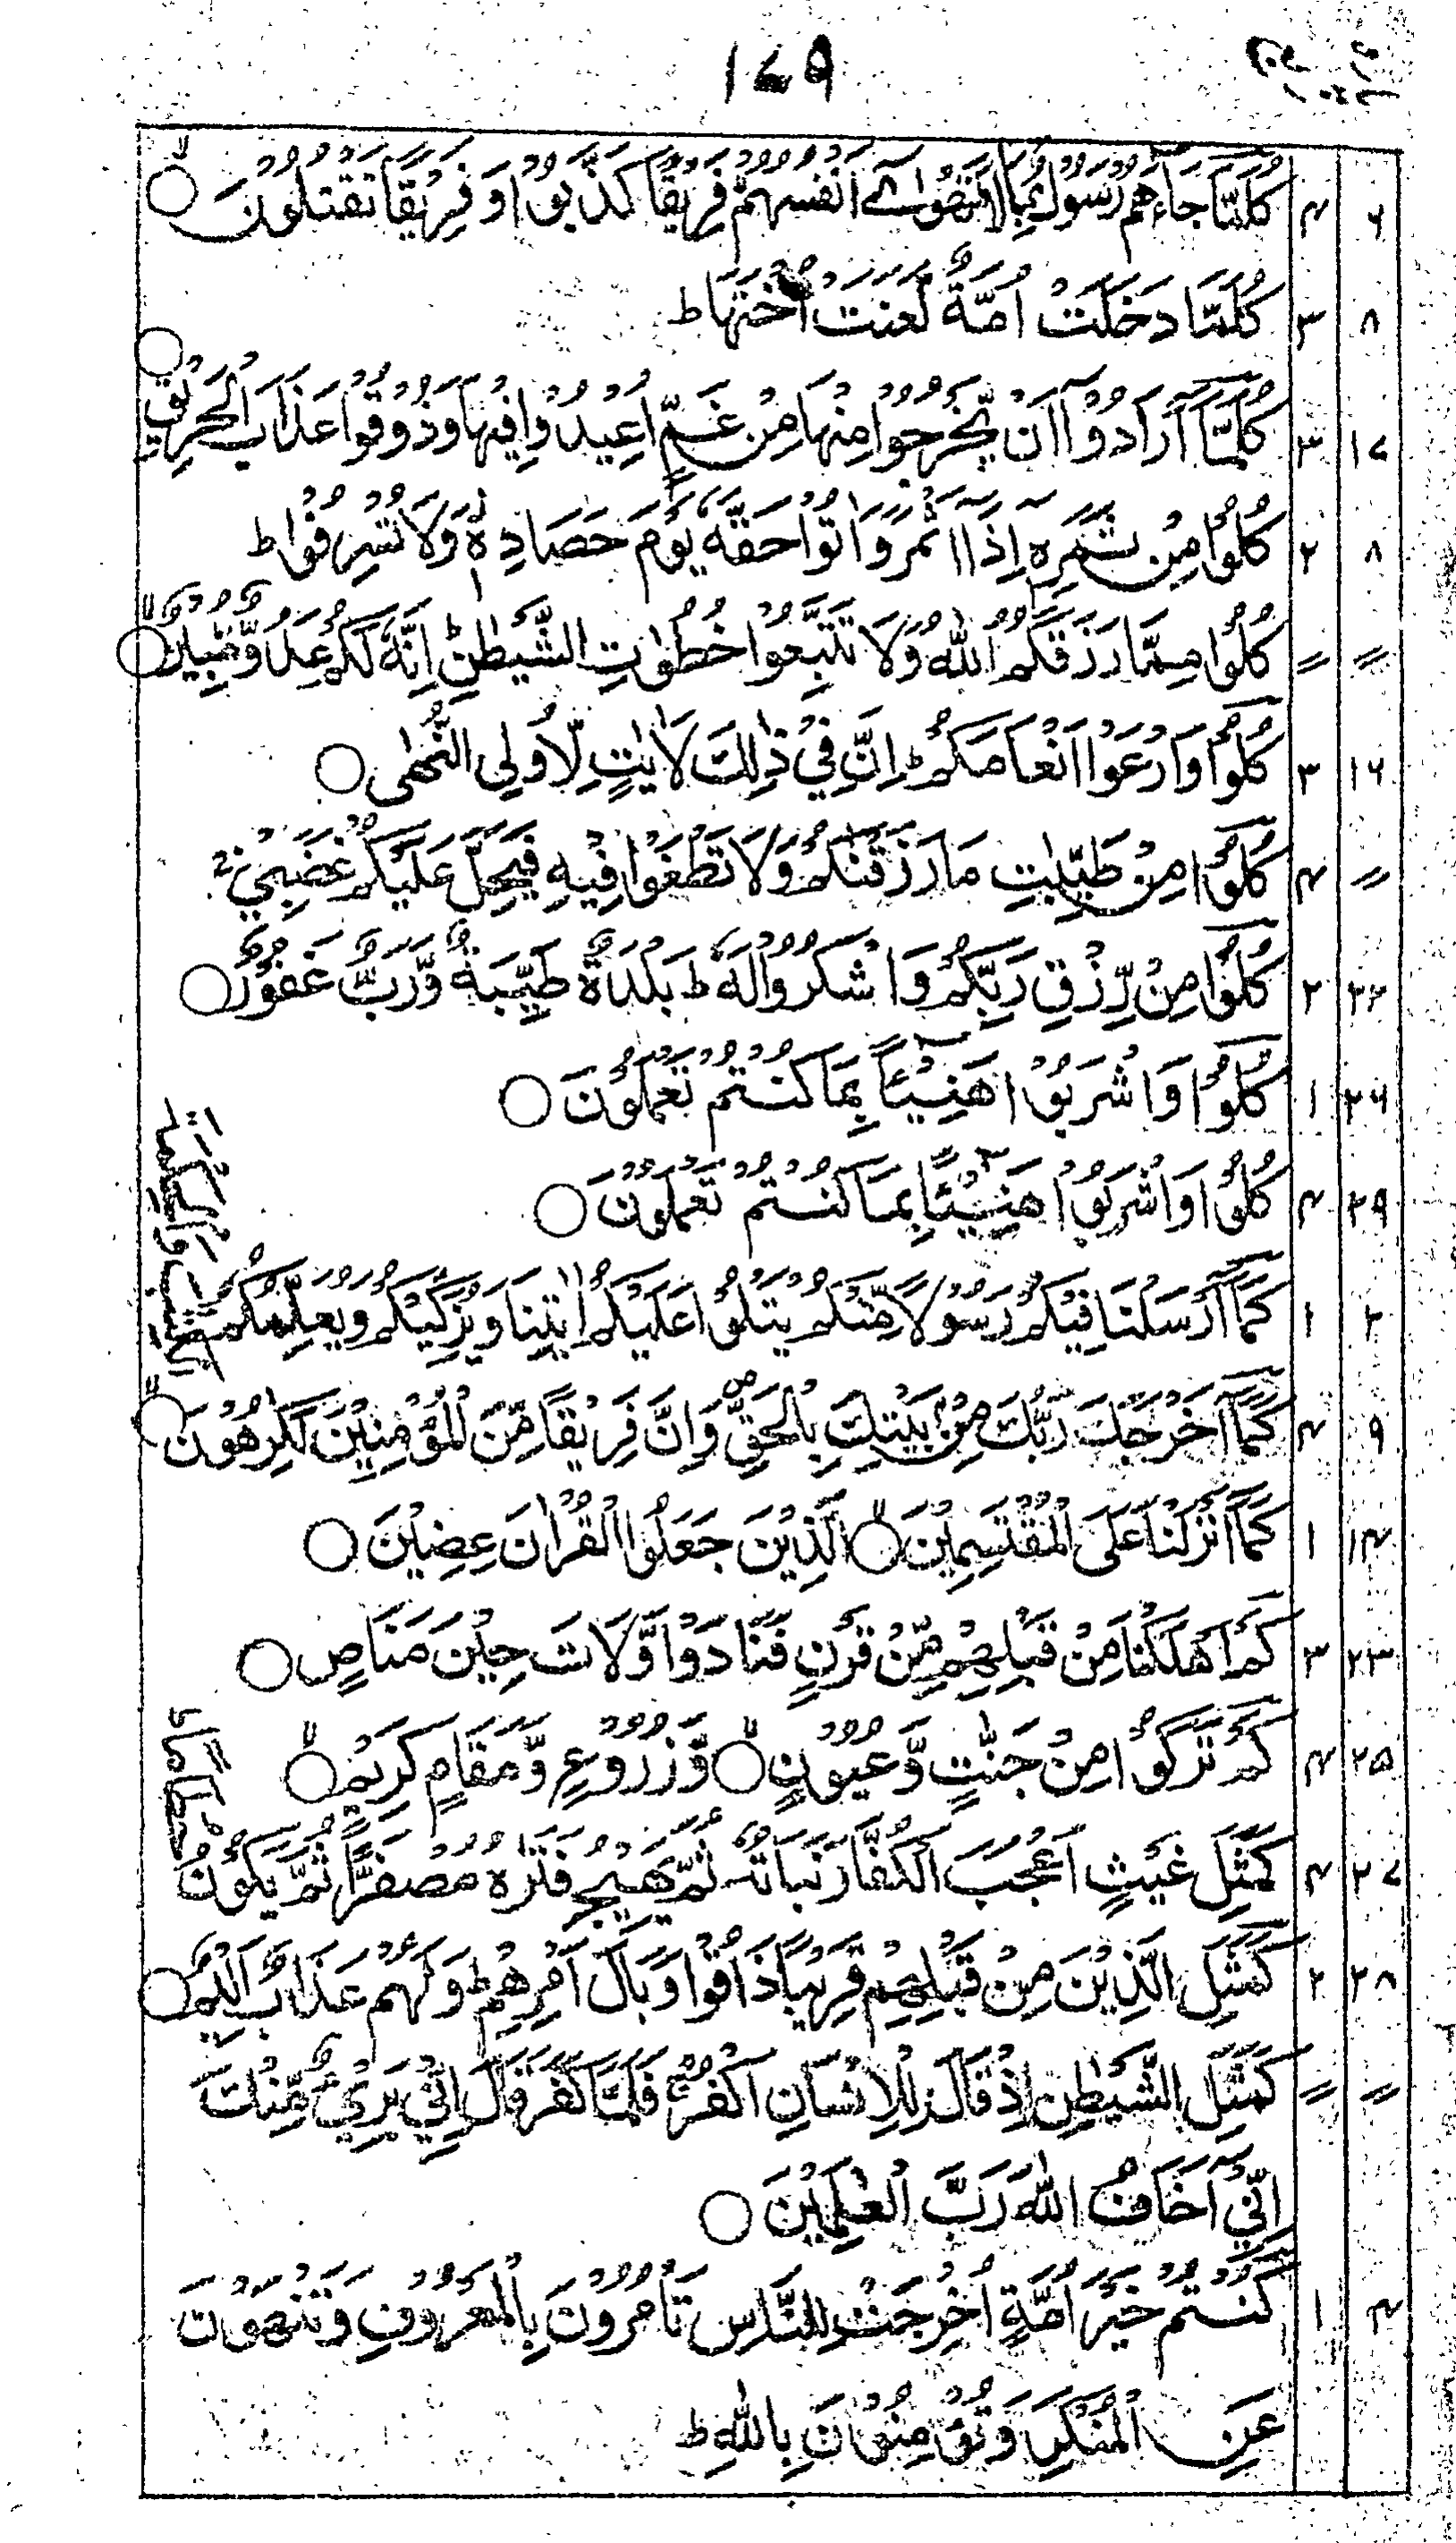 ۱۷۹
۶ ۴ كُلَّمَا جَآءَهُمْ رَسُوْلٌۢ بِمَا لَا تَهْوٰٓى اَنْفُسُهُمْ فَرِيْقًا كَذَّبُوْا وَ فَرِيْقًا يَّقْتُلُوْنَ ○
۸ ۳ كُلَّمَا دَخَلَتْ اُمَّةٌ لَّعَنَتْ اُخْتَهَا ط
۱۷ ۳ كُلَّمَآ اَرَادُوْٓا اَنْ يَّخْرُجُوْا مِنْهَا مِنْ غَمٍّ اُعِيْدُوْا فِيْهَا وَذُوْقُوْا عَذَابَ الْحَرِيْقِ ○
۸ ۲ كُلُوْا مِنْ ثَمَرِهٖٓ اِذَآ اَثْمَرَ وَاٰتُوْا حَقَّهٗ يَوْمَ حَصَادِهٖ وَلَا تُسْرِفُوْا ط
〃 〃 كُلُوْا مِمَّا رَزَقَكُمُ اللّٰهُ وَلَا تَتَّبِعُوْا خُطُوٰتِ الشَّيْطٰنِ ط اِنَّهٗ لَكُمْ عَدُوٌّ مُّبِيْنٌ ○
۱۶ ۳ كُلُوْا وَارْعَوْا اَنْعَامَكُمْ ط اِنَّ فِيْ ذٰلِكَ لَاٰيٰتٍ لِّاُولِى النُّهٰى ○
〃 ۴ كُلُوْا مِنْ طَيِّبٰتِ مَا رَزَقْنٰكُمْ وَلَا تَطْغَوْا فِيْهِ فَيَحِلَّ عَلَيْكُمْ غَضَبِيْ ج
۲۲ ۲ كُلُوْا مِنْ رِّزْقِ رَبِّكُمْ وَاشْكُرُوْا لَهٗ ط بَلْدَةٌ طَيِّبَةٌ وَّرَبٌّ غَفُوْرٌ ○
۲۷ ۱ كُلُوْا وَاشْرَبُوْا هَنِيْٓـًٔا بِمَا كُنْتُمْ تَعْمَلُوْنَ ○
۲۹ ۴ كُلُوْا وَاشْرَبُوْا هَنِيْٓـًٔا بِمَا كُنْتُمْ تَعْمَلُوْنَ ○
۲ ۱ كَمَآ اَرْسَلْنَا فِيْكُمْ رَسُوْلًا مِّنْكُمْ يَتْلُوْا عَلَيْكُمْ اٰيٰتِنَا وَيُزَكِّيْكُمْ وَيُعَلِّمُكُمُ الْكِتٰبَ وَالْحِكْمَةَ
۹ ۴ كَمَآ اَخْرَجَكَ رَبُّكَ مِنْۢ بَيْتِكَ بِالْحَقِّ ص وَاِنَّ فَرِيْقًا مِّنَ الْمُؤْمِنِيْنَ لَكٰرِهُوْنَ ○
۱۴ ۱ كَمَآ اَنْزَلْنَا عَلَى الْمُقْتَسِمِيْنَ ○ الَّذِيْنَ جَعَلُوا الْقُرْاٰنَ عِضِيْنَ ○
۲۳ ۳ كَمْ اَهْلَكْنَا مِنْ قَبْلِهِمْ مِّنْ قَرْنٍ فَنَادَوْا وَّلَاتَ حِيْنَ مَنَاصٍ ○
۲۵ ۴ كَمْ تَرَكُوْا مِنْ جَنّٰتٍ وَّعُيُوْنٍ ○ وَّزُرُوْعٍ وَّمَقَامٍ كَرِيْمٍ ○
۲۷ ۴ كَمَثَلِ غَيْثٍ اَعْجَبَ الْكُفَّارَ نَبَاتُهٗ ثُمَّ يَهِيْجُ فَتَرٰىهُ مُصْفَرًّا ثُمَّ يَكُوْنُ حُطَامًا ط
۲۸ ۲ كَمَثَلِ الَّذِيْنَ مِنْ قَبْلِهِمْ قَرِيْبًا ذَاقُوْا وَبَالَ اَمْرِهِمْ ج وَلَهُمْ عَذَابٌ اَلِيْمٌ ○
〃 〃 كَمَثَلِ الشَّيْطٰنِ اِذْ قَالَ لِلْاِنْسَانِ اكْفُرْ ج فَلَمَّا كَفَرَ قَالَ اِنِّيْ بَرِيْٓءٌ مِّنْكَ
اِنِّيْٓ اَخَافُ اللّٰهَ رَبَّ الْعٰلَمِيْنَ ○
۴ ۱ كُنْتُمْ خَيْرَ اُمَّةٍ اُخْرِجَتْ لِلنَّاسِ تَاْمُرُوْنَ بِالْمَعْرُوْفِ وَتَنْهَوْنَ
عَنِ الْمُنْكَرِ وَتُؤْمِنُوْنَ بِاللّٰهِ ط